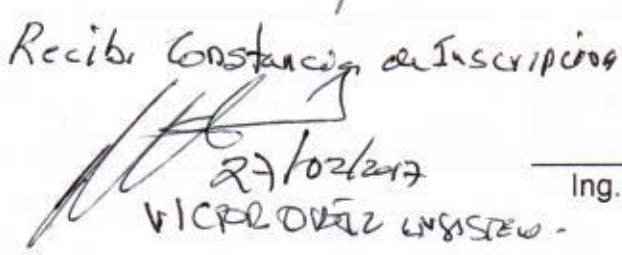 Recibi Constancia de Inscripcion
27/02/2017
VICTOR
Ing.